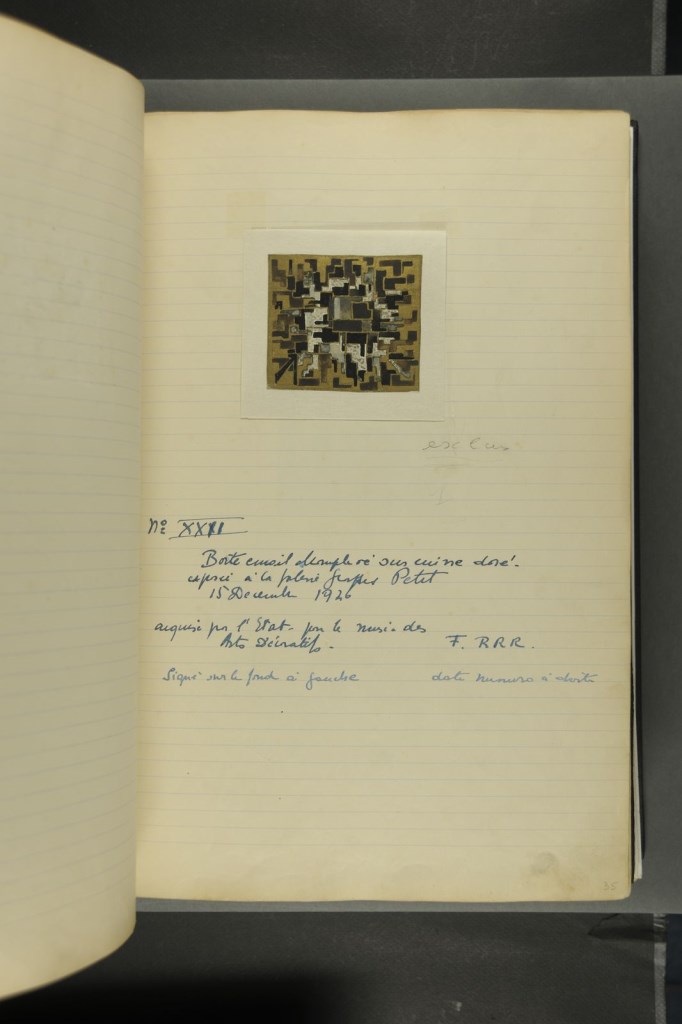 exclus
No XXII
Boite email champlevé sur cuivre doré.
exposé à la galerie Georges Petit
15 Décembre 1926
acquise par l'Etat pour le musée des
Arts Décoratifs.
F. RRR.
Signé sur le fond à gauche
date numero à droite
35